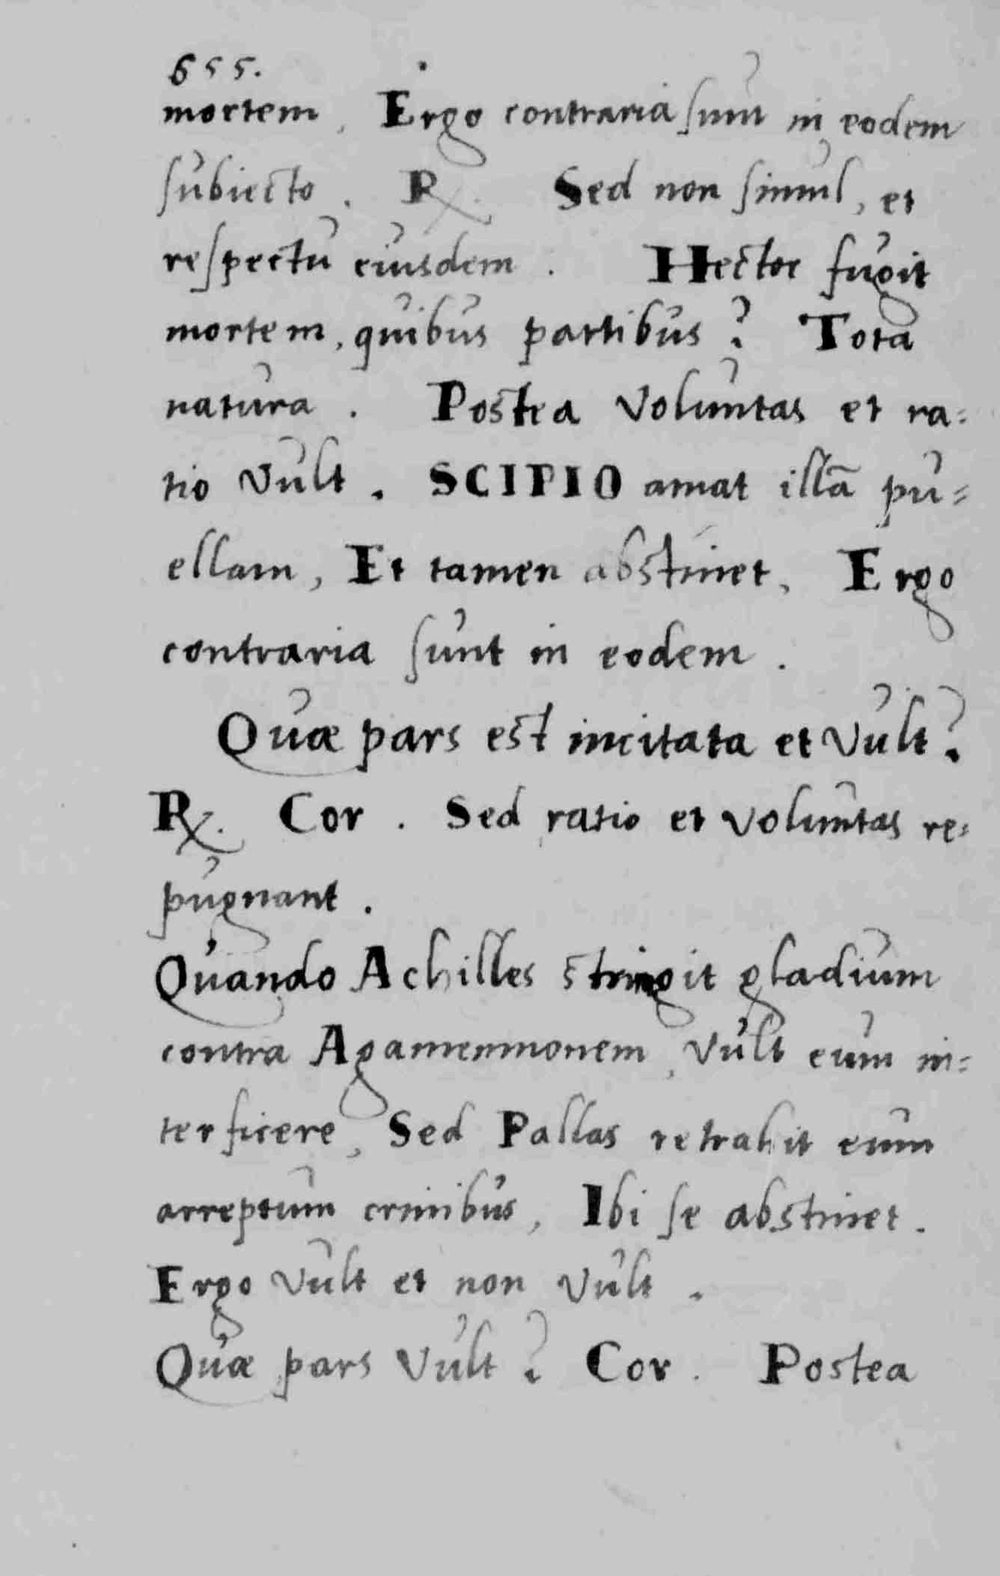 655.
mortem, Ergo contraria sunt in eodem
subiecto. ℞. Sed non simul, et
respectu eiusdem. Hector fugit
mortem, quibus partibus? Tota
natura. Postea voluntas et ra=
tio vult. SCIPIO amat illā pu=
ellam, Et tamen abstinet, Ergo
contraria sunt in eodem.
Quæ pars est incitata et vult?
℞. Cor. Sed ratio et voluntas re=
pugnant.
Quando Achilles stringit gladium
contra Agamemnonem, vult eum in=
terficere, Sed Pallas retrahit eum
arreptum crinibus, Ibi se abstinet.
Ergo vult et non vult.
Quæ pars vult? Cor. Postea